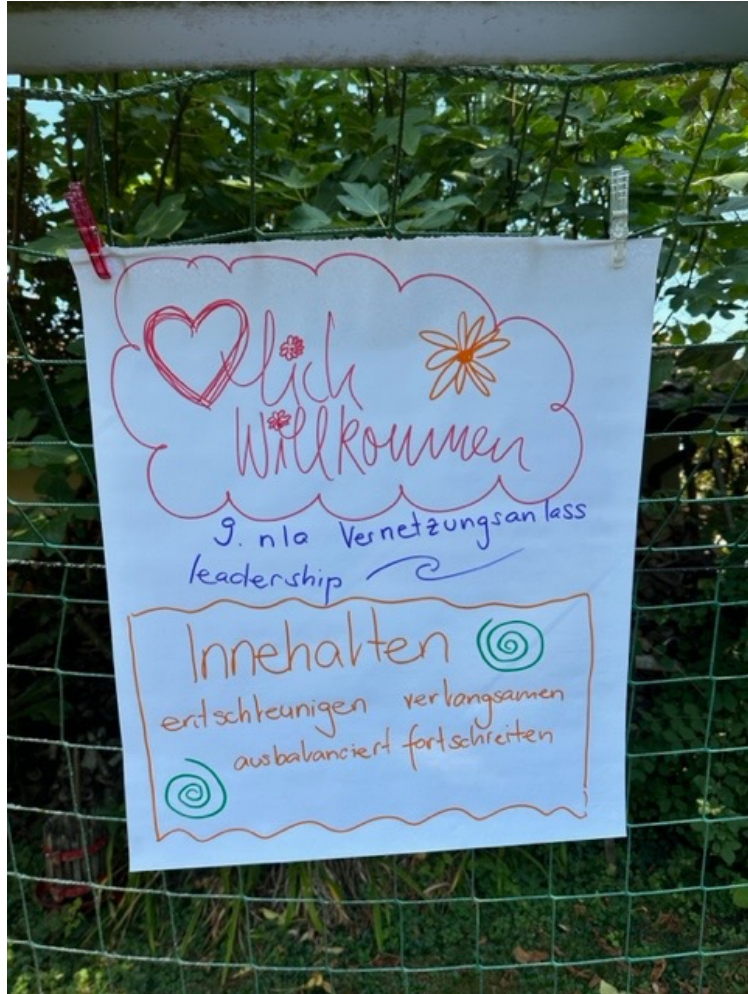 ❤lich
Willkommen
9. nla Vernetzungsanlass
leadership
Innehalten
entschleunigen verlangsamen
ausbalanciert fortschreiten